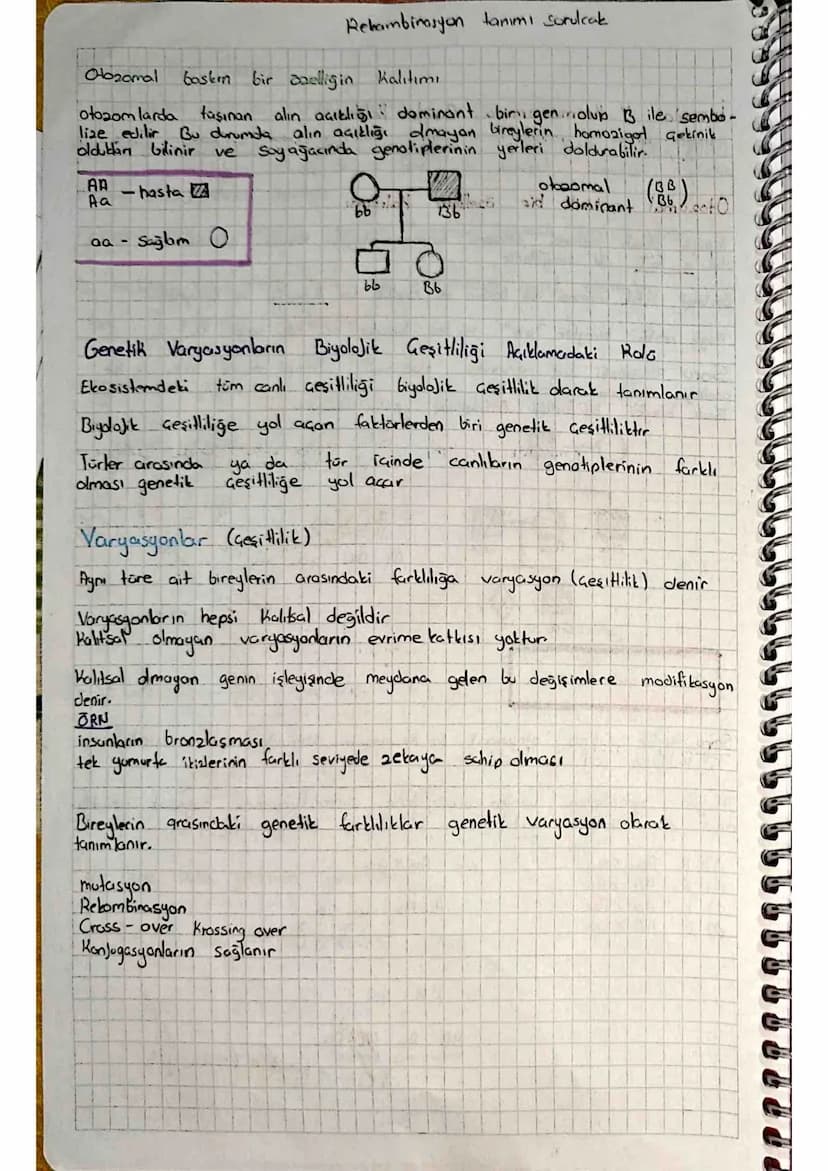 Rekombinasyon tanımı sorulcak
Otozomal baskın bir özelliğin kalıtımı
otozomlarda taşınan alın açıklığı dominant bir gen olup B ile sembo-
lize edilir Bu durumda alın açıklığı olmayan bireylerin homozigot çekinik
oldukları bilinir ve soyağacında genotiplerinin yerleri doldurabilir.
AA
Aa
- hasta
aa - sağlam
bb
Bb
bb
Bb
otozomal
dominant
(BB
Bb)
Genetik Varyasyonların Biyolojik Çeşitliliği Açıklamadaki Rolü
Ekosistemdeki tüm canlı çeşitliliği biyolojik çeşitlilik olarak tanımlanır
Biyolojik çeşitliliğe yol açan faktörlerden biri genetik çeşitliliktir
Türler arasında ya da tür içinde canlıların genotiplerinin farklı
olması genetik çeşitliliğe yol açar
Varyasyonlar (Çeşitlilik)
Aynı türe ait bireylerin arasındaki farklılığa varyasyon (çeşitlilik) denir
Varyasyonların hepsi kalıtsal değildir
Kalıtsal olmayan varyasyonların evrime katkısı yoktur
Kalıtsal olmayan genin işleyişinde meydana gelen bu değişimlere modifikasyon
denir.
ÖRN
insanların bronzlaşması
tek yumurta ikizlerinin farklı seviyede zekaya sahip olması
Bireylerin arasındaki genetik farklılıklar genetik varyasyon olarak
tanımlanır.
mutasyon
Rekombinasyon
Cross-over Krossing over
Konjugasyonların sağlanır